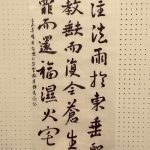 注法雨於東垂聖
教缺而復全蒼生
罪而還福濕火宅